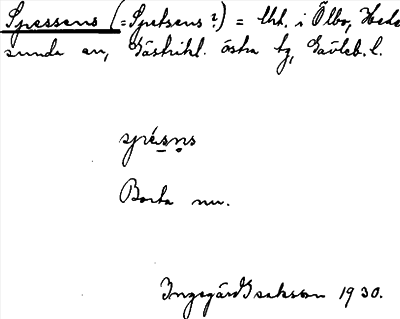 Spessens (= Spetsens?) = lht. i Ölbo, Hede
sunda sn, Gästrikl. östra tg, Gävleb. l.
spésns
Borta nu.
Ingegärd Isaksson 1930.